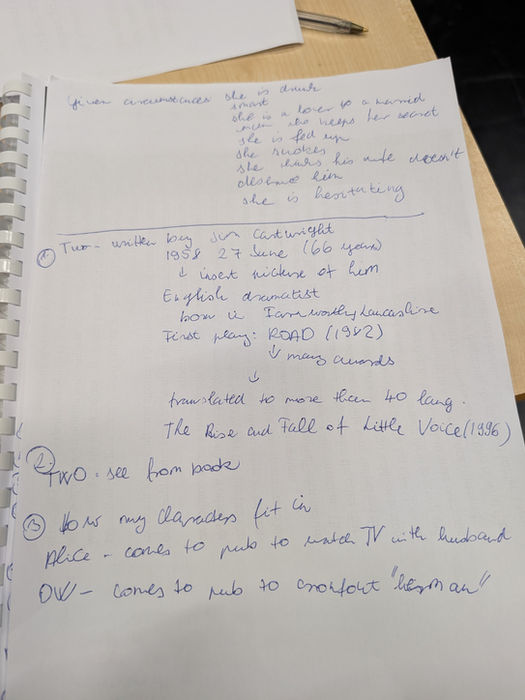 Given circumstances she is drunk
smart
she is a lover to a married
man she keeps her secret
she is fed up
she smokes
she thinks his wife doesn't
deserve him
she is hesitating
1. Two - written by Jim Cartwright
1958 27 June (66 years)
↓ insert picture of him
English dramatist
born in Farnworthy Lancashire
First play: ROAD (1982)
↓ many awards
↓
translated to more than 40 lang.
The Rise and Fall of Little Voice (1996)
2.
TWO - see from book
3 How my characters fit in
Alice - comes to pub to watch TV with husband
OW - comes to pub to confront "her man"